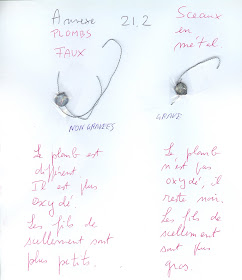 Annexe 21.2
PLOMBS
FAUX
Sceaux
en
métal
NON GRAVÉES
GRAVÉ
Le plomb est
différent.
Il est plus
oxydé.
Les fils de
scellement sont
plus petits.
Le plomb
n'est pas
oxydé, il
reste noir.
Les fils de
scellement
sont plus
gros